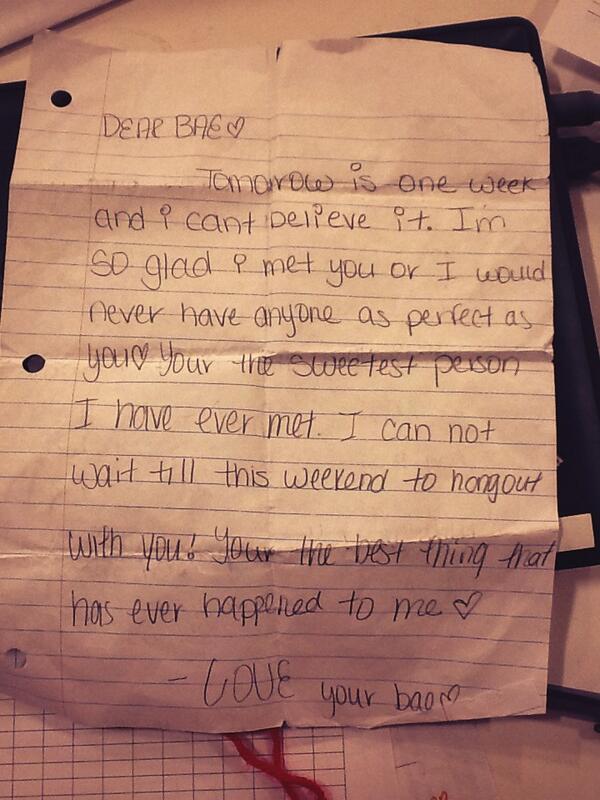 DEAR BAE♡
Tomarow is one week
and i cant believe it. Im
so glad i met you or I would
never have anyone as perfect as
you♡ Your the sweetest person
I have ever met. I can not
wait till this weekend to hangout
with you! Your the best thing that
has ever happened to me ♡
- LOVE your bae♡